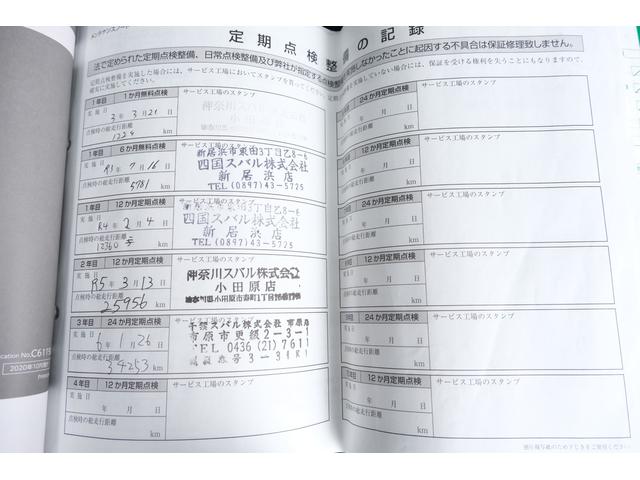 メンテナンスノート
定期点検整備の記録
法で定められた定期点検整備、日常点検整備及び弊社が指定する点検整
しなかったことに起因する不具合は保証修理致しません。
定期点検整備を実施した場合には、サービス工場においてスタンプを
確実に実施してください。
していない場合には、保証を受ける権利を失うことにもなりますので、
1年目 1か月無料点検
サービス工場のスタンプ
実施日 3年3月21日
神奈川スバル株式会社
小田原店
点検時の総走行距離
1224 km
1年目 6か月無料点検
サービス工場のスタンプ
実施日 R3年7月16日
新居浜市東田3丁目乙8-6
四国スバル株式会社
新居浜店
TEL(0897)43-5725
点検時の総走行距離
5781 km
1年目 12か月定期点検
サービス工場のスタンプ
実施日 R4年2月4日
新居浜市東田3丁目乙8-6
四国スバル株式会社
新居浜店
TEL(0897)43-5725
点検時の総走行距離
12360 km
2年目 12か月定期点検
サービス工場のスタンプ
実施日 R5年3月13日
神奈川スバル株式会社
小田原店
点検時の総走行距離
25956 km
3年目 24か月定期点検
サービス工場のスタンプ
実施日 6年1月26日
千葉スバル株式会社 市原店
市原市更級2-3-1
TEL 0436(21)7611
点検時の総走行距離
34253 km
4年目 12か月定期点検
サービス工場のスタンプ
実施日 年 月 日
点検時の総走行距離
km
24か月定期点検
サービス工場のスタンプ
年 月 日
総走行距離
km
12か月定期点検
サービス工場のスタンプ
年 月 日
総走行距離
km
24か月定期点検
サービス工場のスタンプ
年 月 日
総走行距離
km
12か月定期点検
サービス工場のスタンプ
年 月 日
総走行距離
km
24か月定期点検
サービス工場のスタンプ
年 月 日
総走行距離
km
12か月定期点検
サービス工場のスタンプ
年 月 日
総走行距離
km
cation No.C611
2020年10月